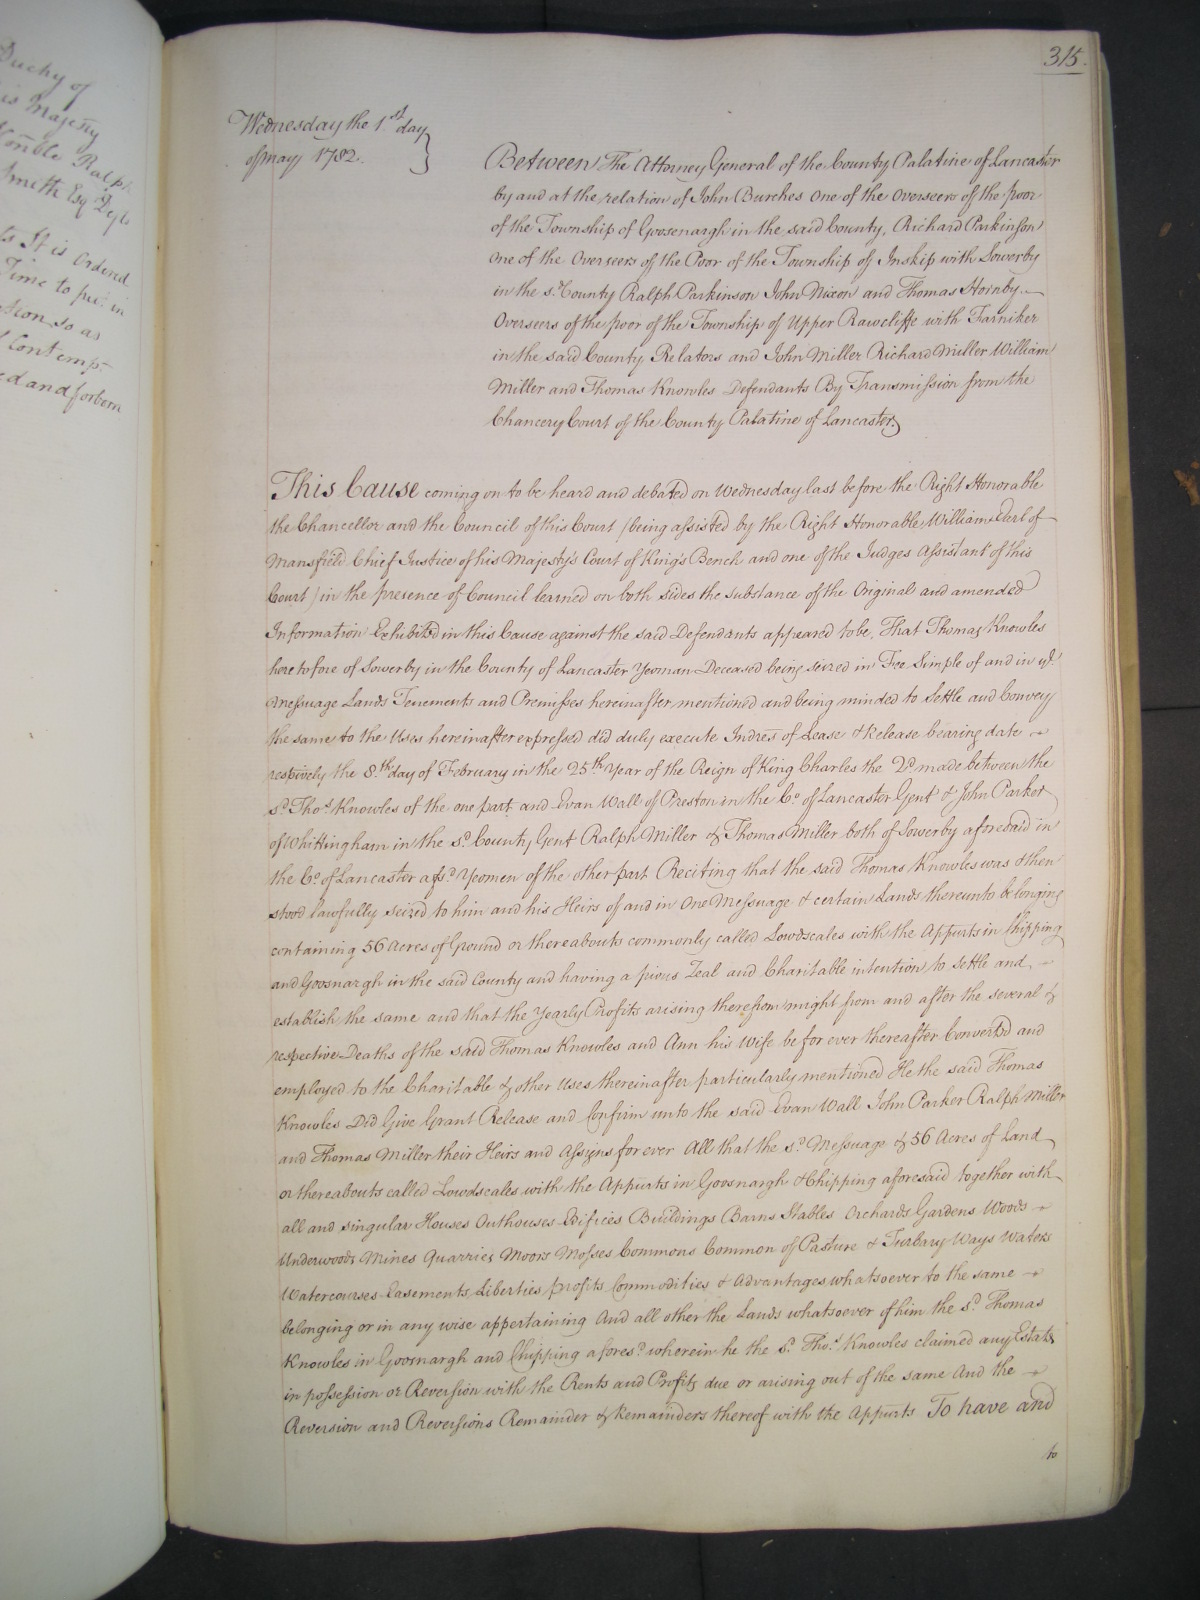 Duchy of
is Majesty
Honble Ralph
Smith Esqr
ts It is Ordered
Time to put in
tion so as
Contempt
ed and forborn
315.
Wednesday the 1st day
of may 1782.
Between The Attorney General of the County Palatine of Lancaster
by and at the relation of John Burches One of the Overseers of the poor
of the Township of Goosenargh in the said County, Richard Parkinson
One of the Overseers of the Poor of the Township of Inskip with Sowerby
in the sd. County Ralph Parkinson John Nixon and Thomas Hornby
Overseers of the poor of the Township of Upper Rawcliffe with Tarniker
in the said County Relators and John Miller Richard Miller William
Miller and Thomas Knowles Defendants By Transmission from the
Chancery Court of the County Palatine of Lancaster
This Cause coming on to be heard and debated on Wednesday last before the Right Honorable
the Chancellor and the Council of this Court (being assisted by the Right Honorable William Earl of
Mansfield Chief Justice of his Majesty's Court of King's Bench and one of the Judges Assistant of this
Court) in the presence of Council learned on both sides the substance of the Original and amended
Information Exhibited in this Cause against the said Defendants appeared to be, That Thomas Knowles
heretofore of Sowerby in the County of Lancaster Yeoman Deceased being seized in Fee Simple of and in ye.
Messuage Lands Tenements and Premisses hereinafter mentioned and being minded to Settle and Convey
the same to the Uses hereinafter expressed did duly execute Indres of Lease & Release bearing date
respively the 8th. day of February in the 25th. Year of the Reign of King Charles the 2d. made between the
sd. Thos. Knowles of the one part and Evan Wall of Preston in the Co. of Lancaster Gent & John Parker
of Whittingham in the sd. County Gent Ralph Miller & Thomas Miller both of Sowerby aforesaid in
the Co. of Lancaster afsd. Yeomen of the other part Reciting that the said Thomas Knowles was & then
stood lawfully seized to him and his Heirs of and in One Messuage & certain Lands thereunto belonging
containing 56 Acres of Ground or thereabouts commonly called Lowdscales with the Appurts in Chipping
and Goosnargh in the said County and having a pious Zeal and Charitable intention to settle and
establish the same and that the Yearly Profits arising therefrom might from and after the several &
respective Deaths of the said Thomas Knowles and Ann his Wife be for ever thereafter Converted and
employed to the Charitable & other Uses thereinafter particularly mentioned He the said Thomas
Knowles Did Give Grant Release and Confirm unto the said Evan Wall John Parker Ralph Miller
and Thomas Miller their Heirs and Assigns for ever All that the sd. Messuage & 56 Acres of Land
or thereabouts called Lowdscales with the Appurts in Goosnargh & Chipping aforesaid together with
all and singular Houses Outhouses Edifices Buildings Barns Stables Orchards Gardens Woods
Underwoods Mines Quarries Moors Mosses Commons Common of Pasture & Turbary Ways Waters
Watercourses Easements Liberties profits Commodities & Advantages whatsoever to the same
belonging or in any wise appertaining And all other the Lands whatsoever of him the sd. Thomas
Knowles in Goosnargh and Chipping aforesd. wherein he the sd. Thos. Knowles claimed any Estate
in possession or Reversion with the Rents and Profits due or arising out of the same And the
Reversion and Reversions Remainder & Remainders thereof with the Appurts To have and
to